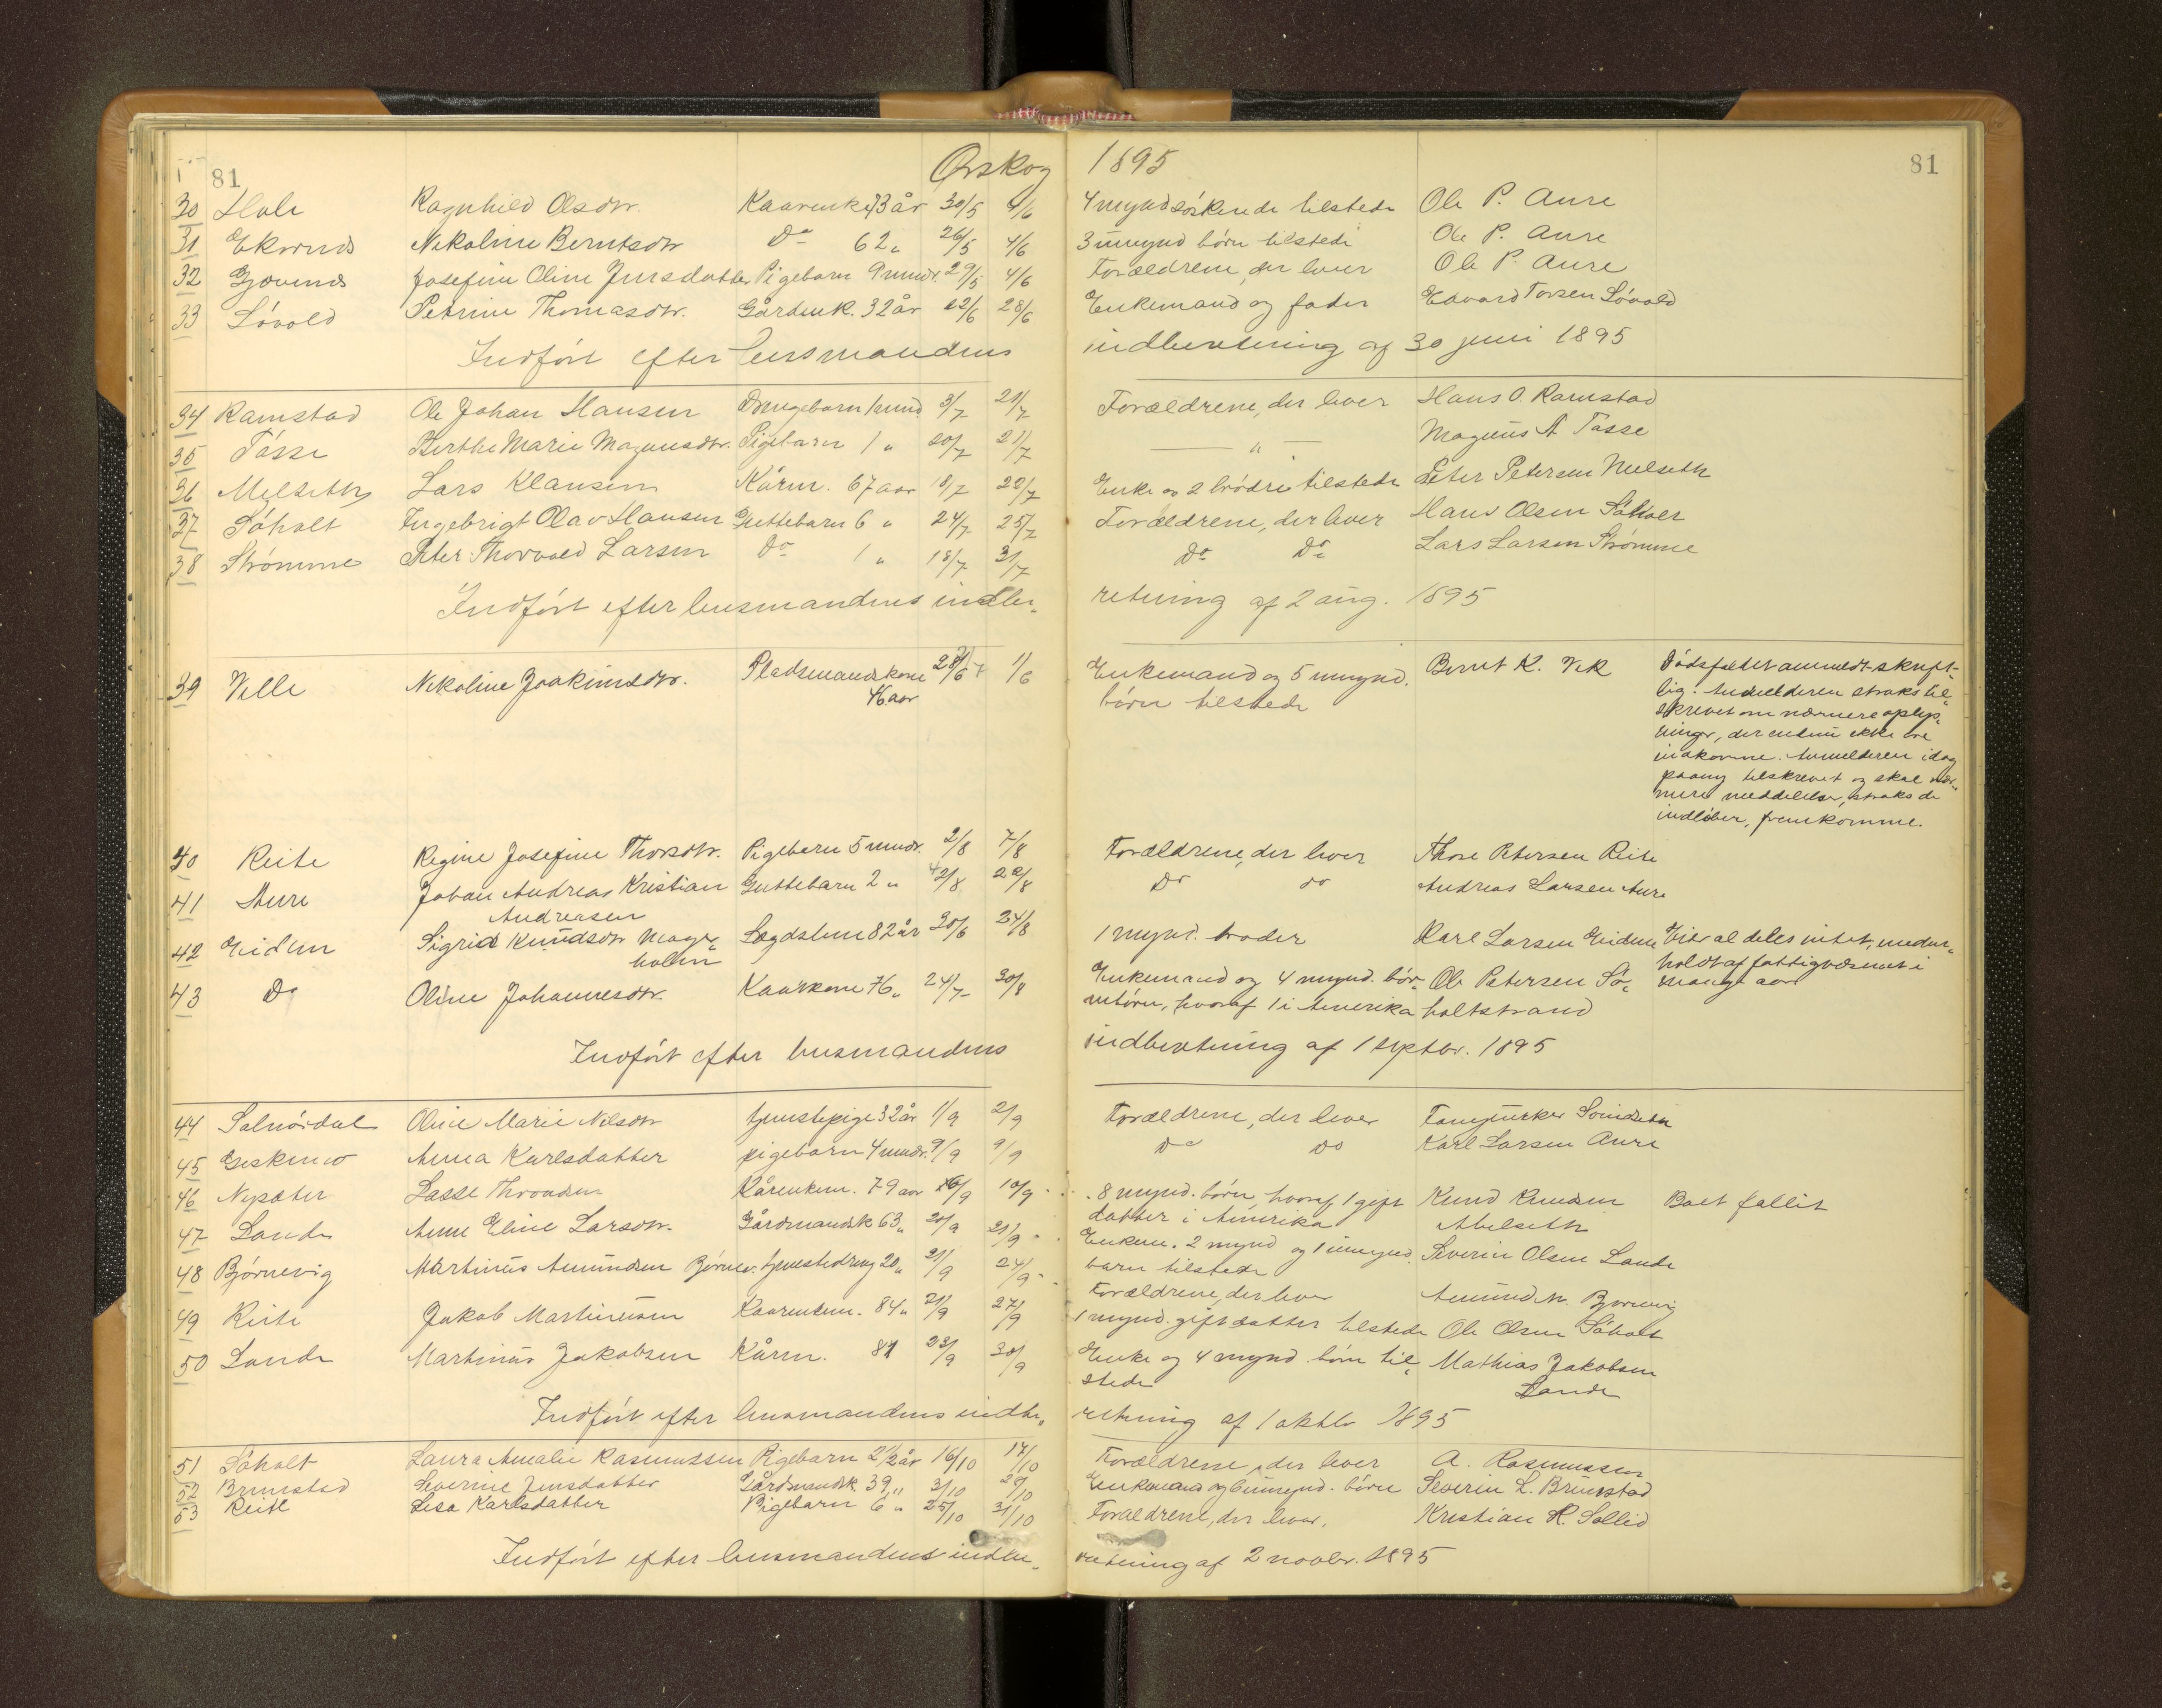 81 Ørskog 1895 81
30 Hole Ragnhild Olsdtr. Kaarenke 73 år 30/5 4/6 4 mynd søskende tilstede Ole P. Aure
31 Ekornes Nikoline Berntsdtr Do 62 " 26/5 4/6 3 umynd børn tilstede Ole P. Aure
32 Gjævenes Josefine Oline Jensdatter Pigebarn 9 mndr. 29/5 4/6 Forældrene, der lever Ole P. Aure
33 Løvold Petrine Thomasdtr. Gårdmk. 32 år 22/6 28/6 Enkemand og fader Edvard Torsen Løvold
Indført efter lensmandens indberetning af 30 juni 1895
34 Ramstad Ole Johan Hansen Drengebarn 1 mnd 3/7 21/7 Forældrene, der lever Hans O. Ramstad
35 Tøsse Berthe Marie Magnusdtr. Pigebarn 1 " 20/7 21/7 — " — Magnus A Tøsse
36 Melseth Lars Klausen Kårm. 67 aar 18/7 22/7 Enke og 2 brødre tilstede Peter Petersen Melseth
37 Søholt Ingebrigt Olav Hansen Guttebarn 6 " 24/7 25/7 Forældrene, der lever Hans Olsen Søholt
38 Strømme Peter Thorvald Larsen Do 1 " 18/7 31/7 Do Do Lars Larsen Strømme
Indført efter lensmandens indberetning af 2 aug. 1895
39 Velle Nikoline Joakimsdtr. Pladsmandskone 28/6 1/6 Enkemand og 5 umynd. Bernt K. Vik Dødsfaldet anmeldt skrift-
46 aar børn tilstede lig. Anmelderen straks til-
skrevet om nærmere oplys-
ninger, der endnu ikke ere
indkomne. Anmelderen idag
paany tilskrevet og skal nær-
mere meddelelser, straks de
indløber, fremkomme.
40 Reite Regine Josefine Thorsdtr. Pigebarn 5 mndr. 2/8 7/8 Forældrene, der lever Thore Petersen Reite
41 Aure Johan Andreas Kristian Guttebarn 2 " 2/8 22/8 Do do Andreas Larsen Aure
Andreasen
42 Eidem Sigrid Knudsdtr Mage- Lægdslem 82 år 30/6 24/8 1 mynd. broder Karl Larsen Eidem Eier aldeles intet, under-
holm holdt af fattigvæsenet i
43 Do Oline Johannesdtr. Kaarkone 76 " 24/7 30/8 Enkemand og 4 mynd. bør- Ole Petersen Sø- mange aar
nebørn, hvoraf 1 i Amerika holtstrand
Indført efter lensmandens indberetning af 1 septbr. 1895
44 Solnørdal Oline Marie Nilsdtr tjenestepige 32 år 1/9 2/9 Forældrene, der lever Solnørdal
45 Anna Karlsdatter pigebarn 4 mndr. 9/9 9/9 Do Do Karl Larsen Aure
46 Nysæter Lasse Throndsen Kårenkem. 79 aar 6/9 10/9 8 mynd. børn, hvoraf 1 gift Knud Knudsen Boet fallit
datter i Amerika Abelseth
47 Lande Anne Eline Larsdtr. Gårdmandsk 63 " 20/9 21/9 Enkem. 2 mynd og 1 umynd. Severin Olsen Lande
barn tilstede
48 Bjørnevig Martinus Amundsen Bjørnev. tjenestedreng 20 " 21/9 24/9 Forældrene, der lever Amund M. Bjørnevig
49 Reite Jakob Martinussen Kaarenkem. 84 " 21/9 27/9 1 mynd. gift datter tilstede Ole Olsen Søholt
50 Lande Martinus Jakobsen Kårm. 81 23/9 30/9 Enke og 4 mynd børn til- Mathias Jakobsen
stede Lande
Indført efter lensmandens indberetning af 1 oktbr 1895
51 Søholt Laura Amalie Rasmussen Pigebarn 2 1/2 år 16/10 17/10 Forældrene, der lever A. Rasmussen
52 Brunstad Severine Jensdatter Gårdmandsk. 39 " 3/10 29/10 Enkemand og 6 umynd. børn Severin L. Brunstad
53 Reite Lisa Karlsdatter Pigebarn 6 " 25/10 31/10 Forældrene, der lever. Kristian R. Sollid
Indført efter lensmandens indberetning af 2 novbr. 1895